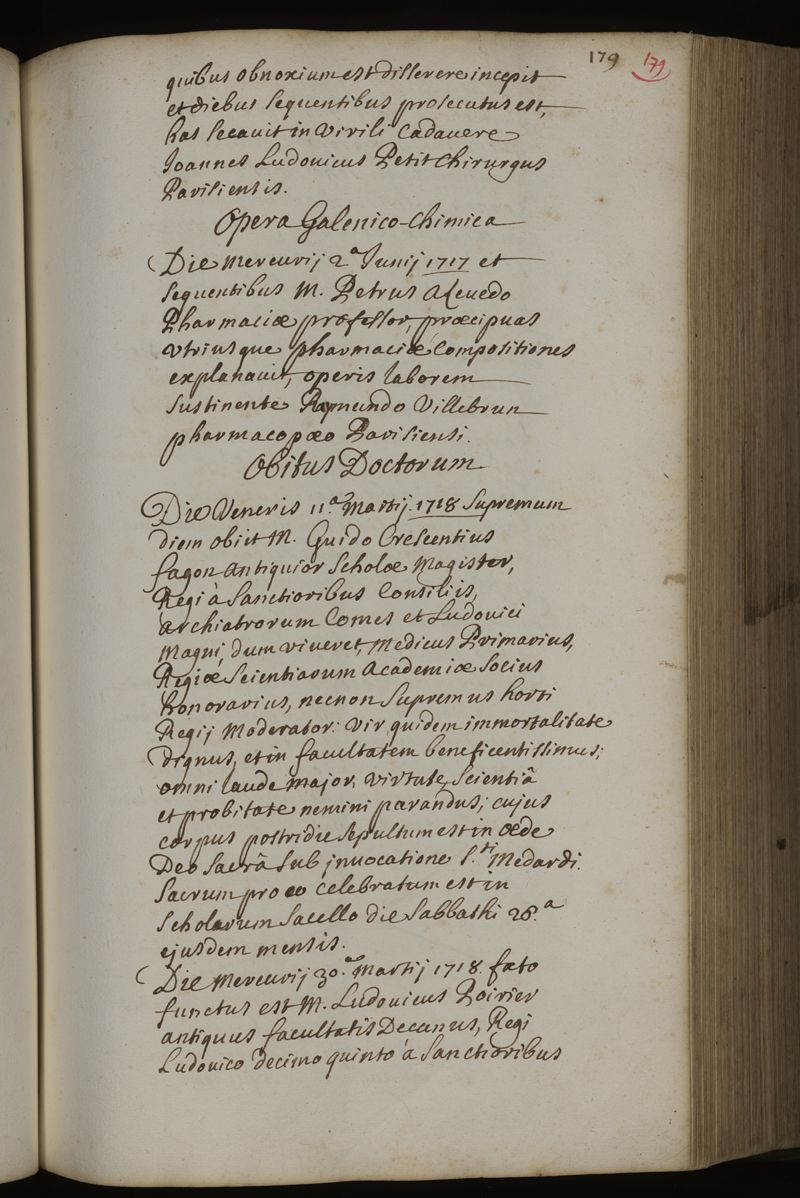 179 179
quibus obnoxium est disserere incepit
et diebus sequentibus prosecutus est,
has secavit in virili Cadavere
Joannes Ludovicus Petit Chirurgus
Parisiensis.
Opera Galenico-Chimica
Die Mercurij 2.a Junij 1717 et
sequentibus M. Petrus Alevedo
Pharmaciæ professor, præcipuas
utriusque pharmaciæ Compositiones
explanavit, operis laborem
sustinente Raymundo Villebrun
pharmacopæo Parisiensi.
Obitus Doctorum
Die Veneris 11.a Martij 1718 Supremum
diem obiit M. Guido Crescentius
fagon Antiquior Scholæ Magister,
Regi à Sanctioribus Consiliis,
archiatrorum Comes et Ludovici
Magni, dum viveret, Medicus Primarius,
Regiæ Scientiarum Academiæ Socius
honorarius, necnon Supremus horti
Regij Moderator. Vir quidem immortalitate
Dignus, et in facultatem beneficentissimus;
omni laude Major, virtute, Scientiâ
et probitate nemini parandus; cujus
corpus postridie sepultum est in æde
Deo Sacrâ sub jnvocatione S.ti Medardi.
Sacrum pro eo Celebratum est in
Scholarum Sacello die Sabbathi 26.a
ejusdem mensis.
Die Mercurij 30.a Martij 1718. fato
functus est M. Ludovicus Poirier
antiquus facultatis Decanus, Regi
Ludovico decimo quinto à Sanctioribus